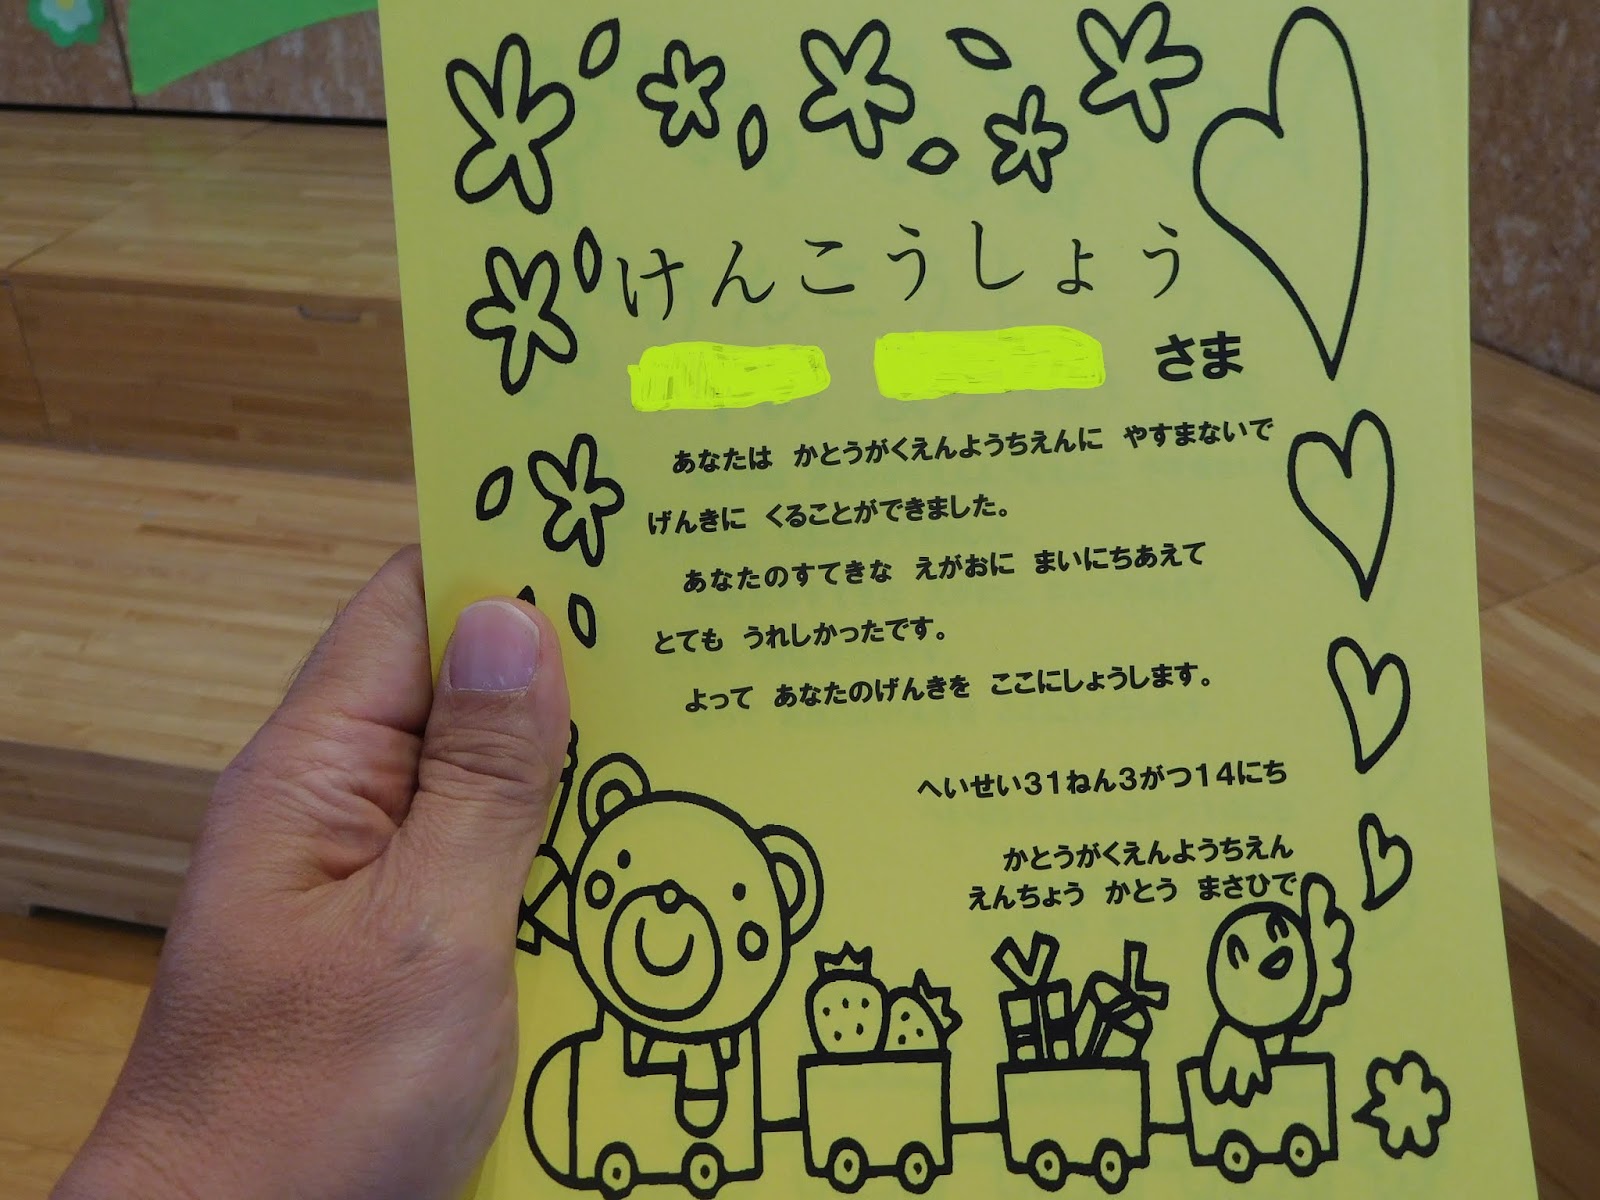 けんこうしょう
さま
あなたは かとうがくえんようちえんに やすまないで
げんきに くることができました。
あなたのすてきな えがおに まいにちあえて
とても うれしかったです。
よって あなたのげんきを ここにしょうします。
へいせい31ねん3がつ14にち
かとうがくえんようちえん
えんちょう かとう まさひで